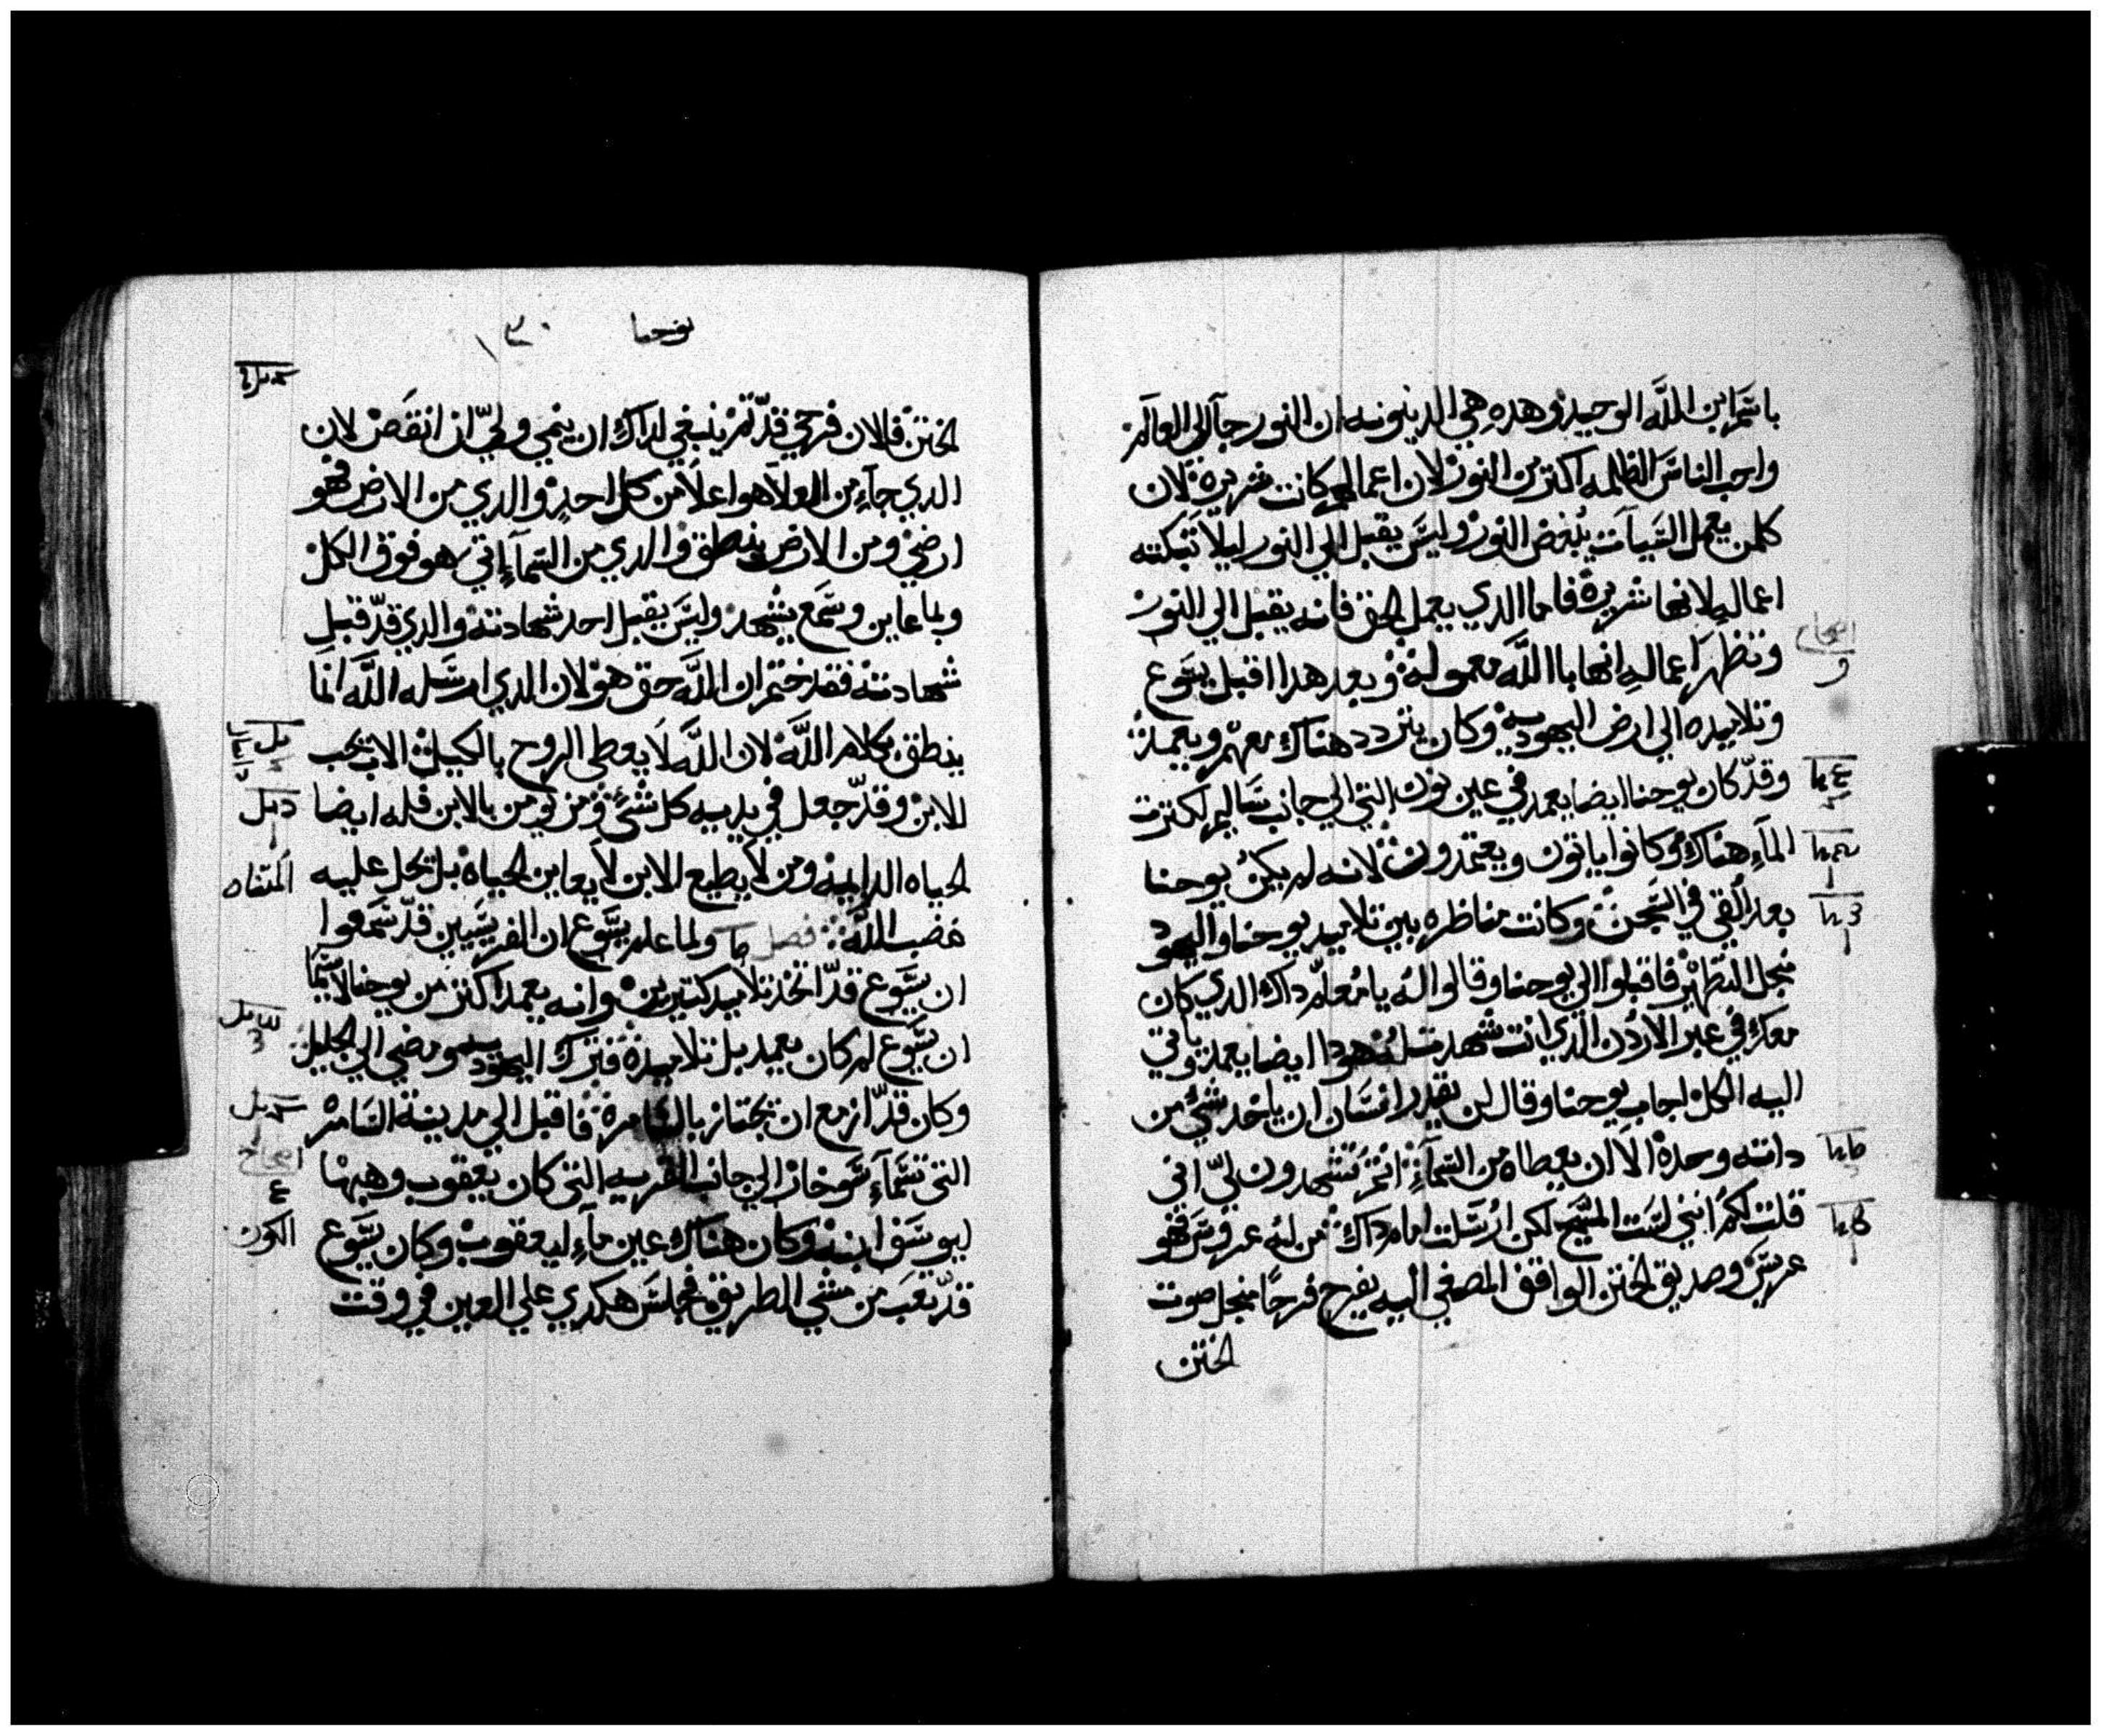 باسم ابن الله الوحيد وهده هي الدينونه ان النور جآ الي العالم
واحب الناس الظلمه اكتر من النور لان اعمالهم كانت شريرة لان
كلمن يعمل السيآت يبغض النور وليس يقبل الي النور ليلا تبكته
اعماله لانها شريرة فاما الدي يعمل الحق فانه يقبل الي النور
وتظهر اعماله انها باالله معموله وبعد هدا اقبل يسوع
وتلاميده الي ارض اليهوديه وكان يتردد هناك معهم ويعمد
وقد كان يوحنا ايضا يعمد في عين نون التي الي جانب ساليم لكترت
المآء هناك وكانوا ياتون ويعتمدون لانه لم يكن يوحنا
بعد القي في السجن وكانت مناظره بين تلاميد يوحنا واليهود
منجل التطهير فاقبلوا الي يوحنا وقالوا له يا معلم داك الدي كان
معك في عبر الاردن الدي انت شهدت له هودا ايضا يعمد وياتي
اليه الكل اجاب يوحنا وقال لن يقدر انسان ان ياخد شي من
داته وحده الا ان يعطاه من السمآء انتم تشهدون لي اني
قلت لكم انني لست المسيح لكن ارسلت امام داك من له عروس فهو
عريس وصديق الختن الواقف المصغي اليه يفرح فرحا منجل صوت
الختن
يوحنا
الختن فالان فرحي قد تم ينبغي لداك ان ينمي ولي ان انقص لان
الدي جآء من العلا هو اعلا من كل احد والدي من الارض فهو
ارضي ومن الارض ينطق والدي من السمآء اتي هو فوق الكل
وبما عاين وسمع يشهد وليس يقبل احد شهادته والدي قد قبل
شهادته فقد ختم ان الله حق هو لان الدي ارسله الله انما
ينطق بكلام الله لان الله لا يعطي الروح بالكيل الاب يحب
الابن وقد جعل في يديه كل شي ومن يومن بالابن فله ايضا
الحياه الدايمه ومن لا يطيع الابن لا يعاين الحياه بل يحل عليه
غضب الله فصل ولما علم يسوع ان الفريسيين قد سمعوا
ان يسوع قد اتخد تلاميد كتيرين وانه يعمد اكتر من يوحنا لاسيما
ان يسوع لم كان يعمد بل تلاميده فترك اليهوديه ومضي الي الجليل
وكان قد ازمع ان يجتاز بالسامره فاقبل الي مدينة السامره
التي تسمآء سوخار الي جانب القريه التي كان يعقوب وهبها
ليوسف ابنه وكان هناك عين مآء ليعقوب وكان يسوع
قد تعب من مشي الطريق فجلس هكدي علي العين في وقت